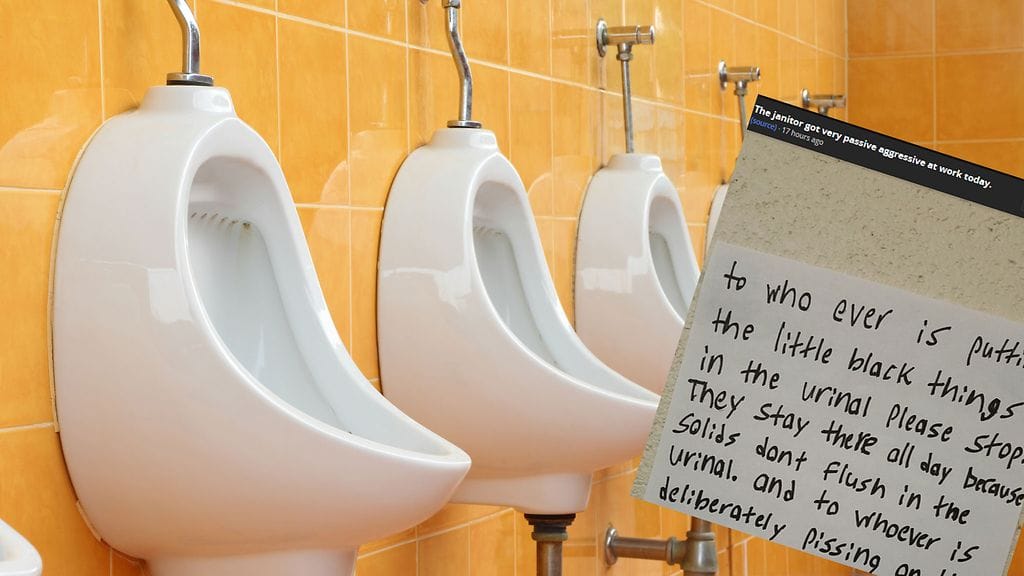 The janitor got very passive aggressive at work today.
(source) · 17 hours ago
to who ever is putti
the little black things
in the urinal please stop
They stay there all day because
solids dont flush in the
urinal. and to whoever is
deliberately pissing on